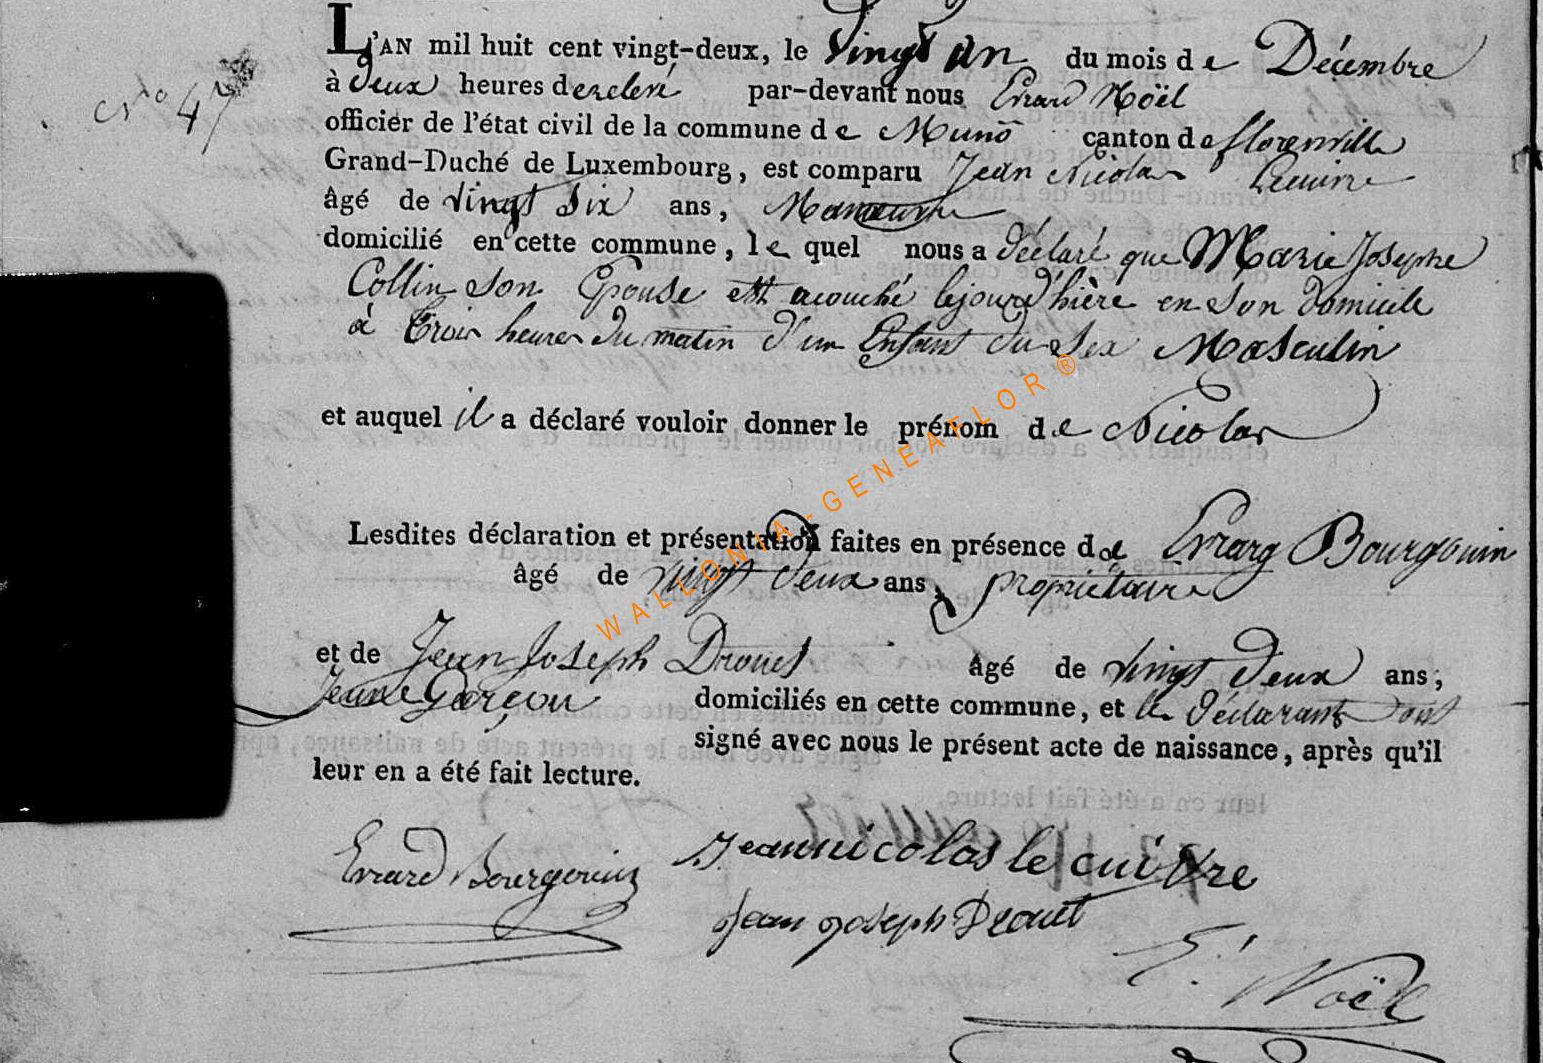 L'AN mil huit cent vingt-deux, le Vingt un du mois de Décembre
No 47
à deux heures de relevé par-devant nous Errard Noël
officier de l'état civil de la commune de Muno canton de florenville
Grand-Duché de Luxembourg, est comparu Jean Nicolas Lecuivre
âgé de vingt Six ans, Manoeuvre
domicilié en cette commune, le quel nous a déclaré que Marie Josephe
Collin son Epouse est acouché lejourd'hière en son domicile
à trois heures du matin d'un Enfant du Sex Masculin
et auquel il a déclaré vouloir donner le prénom de Nicolas
Lesdites déclaration et présentation faites en présence de Errard Bourgouin
âgé de vingt deux ans, propriétaire
et de Jean Joseph Drouet âgé de vingt deux ans;
Jeune Garçon domiciliés en cette commune, et le déclarant ont
signé avec nous le présent acte de naissance, après qu'il
leur en a été fait lecture.
Errard Bourgouin Jean nicolas le cuivre
Jean joseph Drouet
E. Noël
WALLONIA-GENEAFLOR ®